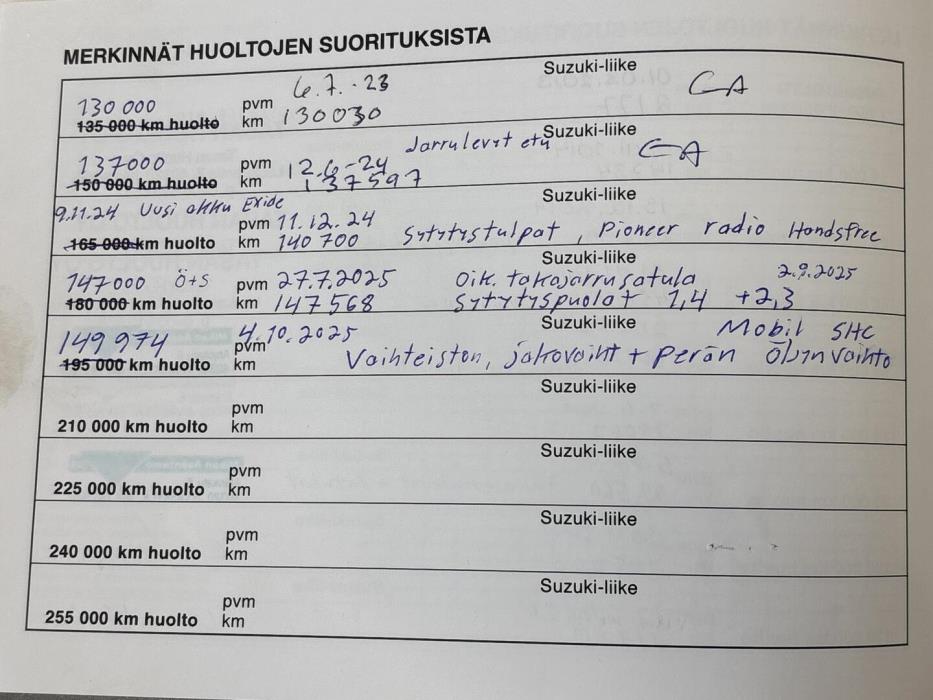 MERKINNÄT HUOLTOJEN SUORITUKSISTA
130 000 pvm 6.7.-23 Suzuki-liike
135 000 km huolto km 130030 CA
137000 pvm 12.6-24 Jarrulevyt etu Suzuki-liike
150 000 km huolto km 137597 CA
9.11.24 Uusi akku Exide pvm 11.12.24 Suzuki-liike
165 000 km huolto km 140 700 Sytytystulpat, Pioneer radio Handsfree
147000 Ö+S pvm 27.7.2025 Oik. takajarrusatula Suzuki-liike 2.9.2025
180 000 km huolto km 147568 Sytytyspuolat 1,4 +2,3
149 974 pvm 4.10.2025 Suzuki-liike Mobil SHC
195 000 km huolto km Vaihteiston, jakovaiht + perän öljynvaihto
pvm Suzuki-liike
210 000 km huolto km
pvm Suzuki-liike
225 000 km huolto km
pvm Suzuki-liike
240 000 km huolto km
pvm Suzuki-liike
255 000 km huolto km